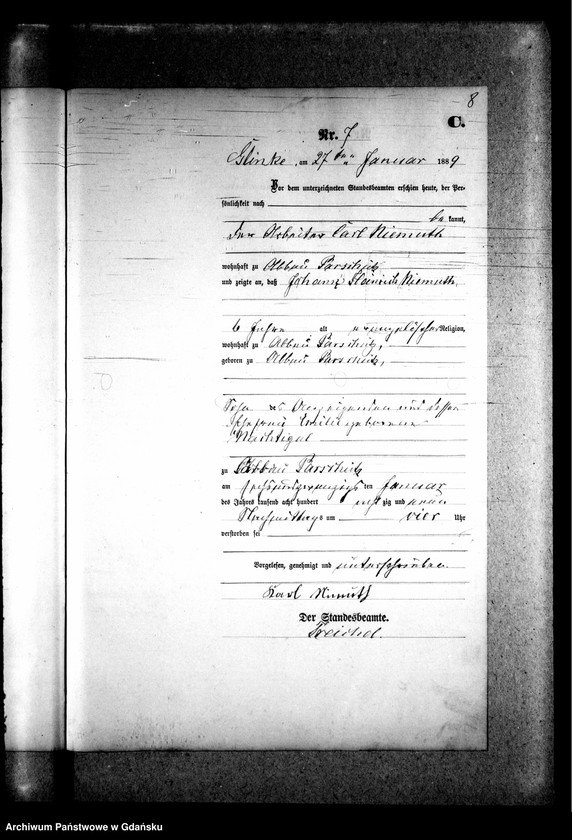 8
C.
Nr. 7
Glinke, am 27ten Januar 1889
Vor dem unterzeichneten Standesbeamten erschien heute, der Per-
sönlichkeit nach
be kannt,
der Arbeiter Carl Niemuth
wohnhaft zu Abbau Parschütz
und zeigte an, daß Johann Heinrich Niemuth,
6 Jahre alt evangelischer Religion,
wohnhaft zu Abbau Parschütz,
geboren zu Abbau Parschütz,
Sohn des Anzeigenden und dessen
Ehefrau Emilie geborenen
Nachtigal
zu Abbau Parschütz
am sechsundzwanzigsten Januar
des Jahres tausend acht hundert acht zig und neun
Nachmittags um vier Uhr
verstorben sei
Vorgelesen, genehmigt und unterschrieben.
Karl
Der Standesbeamte.
Archiwum Państwowe w Gdańsku